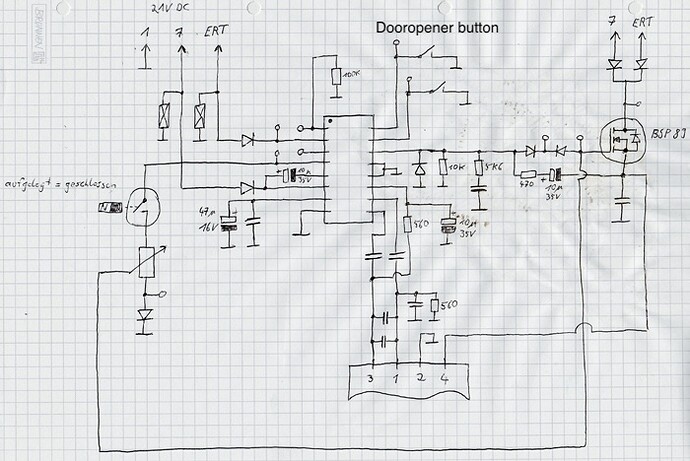 21V DC
1 7 ERT
Dooropener button
7 ERT
100K
BSP 89
aufgelegt = geschlossen
10µ
35V
10K
5K6
470
10µ
35V
47µ
16V
560
10µ
35V
560
3 1 2 4